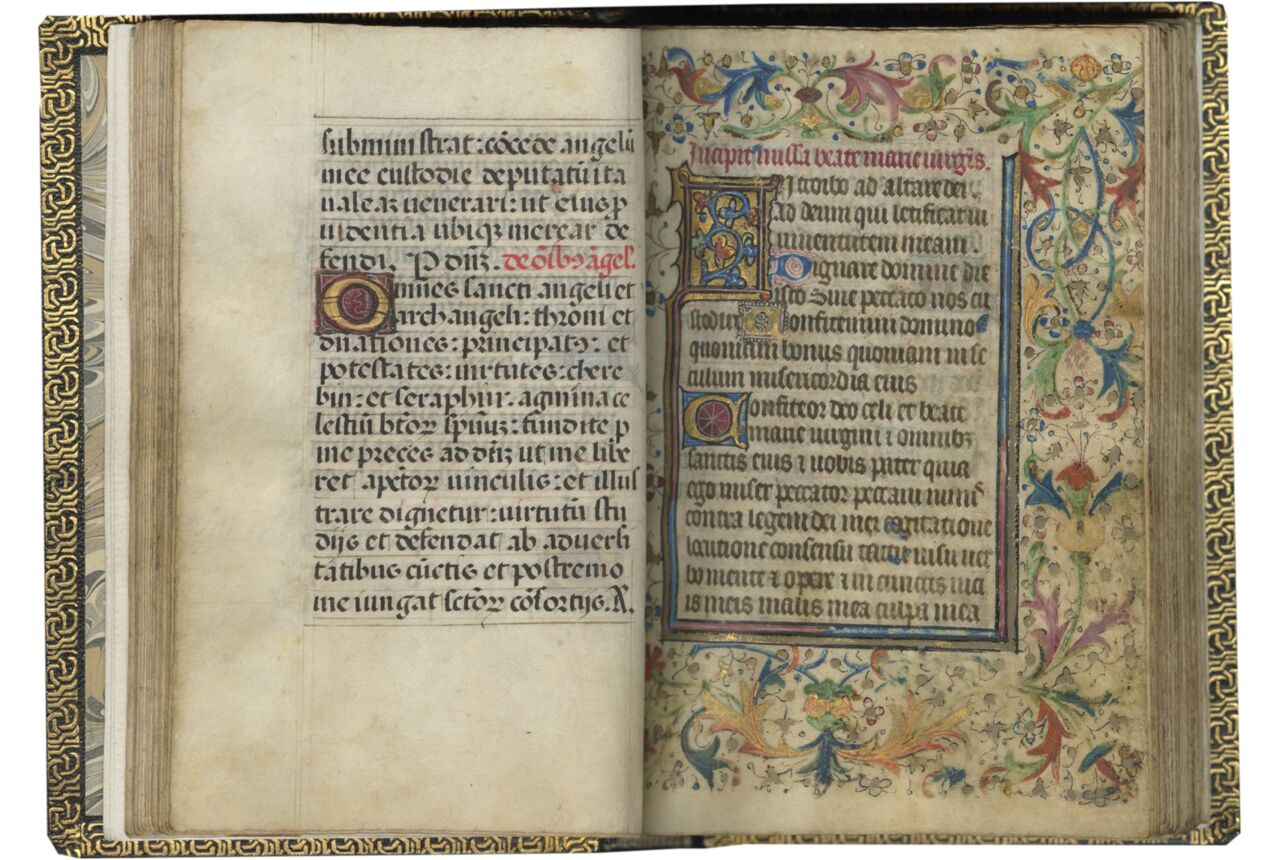 subministrat: cōcede angelū
mee custodie deputatū ita
ualeaʒ uenerari: ut eius ꝓ
uidentia ubiqʒ merear de
fendi. P dn̄ʒ. de oīb9 āgel.
Omnes sancti angeli et
archangeli: throni et
dn̄ationes: principat9: et
potestates: uirtutes: cheru
bin: et seraphin: agmina ce
lestiū bt̄oꝝ spūuʒ: fundite p
me preces ad dn̄ʒ ut me libe
ret apet̄oꝝ uinculis: et illus
trare dignetur: uirtutū stu
dijs et defendat ab aduersi
tatibus cūctis et postremo
me iungat sct̄oꝝ cōsortijs. A.
Incipit missa beate marie uirgīs.
Introibo ad altare dei
ad deum qui letificat iu
uuentutem meam.
Dignare domine die
isto Sine peccato nos cu
stodire Confitemini domino
quoniam bonus quoniam in se
culum misericordia eius
Confiteor deo celi et beate
marie uirgini ⁊ omnibʒ
sanctis eius ⁊ uobis pater quia
ego miser peccator peccaui nimis
contra legem dei mei cogitatione
locutione consensu tactu uisu uer
bo mente ⁊ opere ⁊ in cunctis uici
is meis malis mea culpa mea